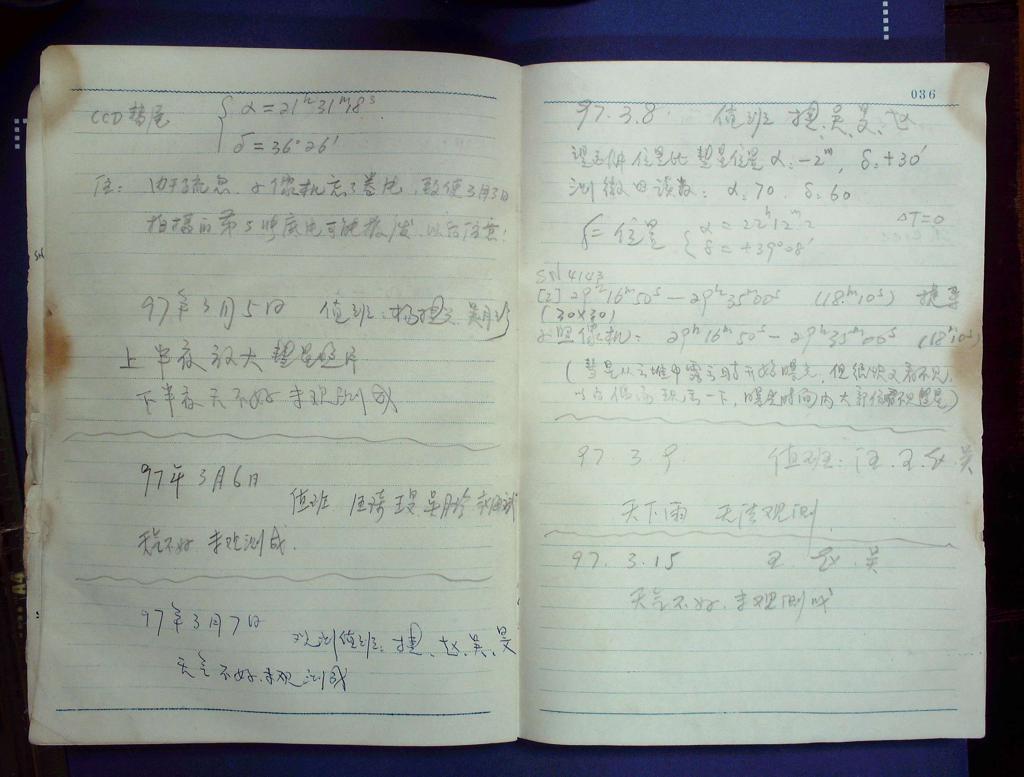 CCD彗尾 { α=21ʰ31ᵐ18ˢ
δ=36°26′
注: 由于疏忽, 照像机忘了卷片, 致使3月3日
拍摄的第5张底片可能报废, 以后注意!
97年3月5日 值班: 杨捷
上半夜放大彗星照片
下半夜天不好未观测成
97年3月6日
值班 汪琦
天气不好 未观测成.
97年3月7日
观测值班: 捷、赵、吴、旻
天气不好.未观测成
036
97.3.8. 值班 捷、吴、旻、赵
位置比彗星位置α:-2ᵐ, δ:+30′
测微目读数: α:70. δ:60
位置 { α=22ʰ12ᵐ2
δ=+39°08′
ΔT=0
SSI 4143
[2] 29ʰ16ᵐ50ˢ—29ʰ35ᵐ00ˢ (18ᵐ10ˢ)
(30×30)
照像机: 29ʰ16ᵐ50ˢ—29ʰ35ᵐ00ˢ (18ᵐ10ˢ)
(彗星从云堆中露云时开始曝光, 但很快又看不见,
以后偶尔现一下, 曝光时间内大部份看不见彗星)
97.3.9. 值班: 汪、王、赵、吴
天下雨 无法观测.
97.3.15 王、赵、吴
天气不好.未观测成